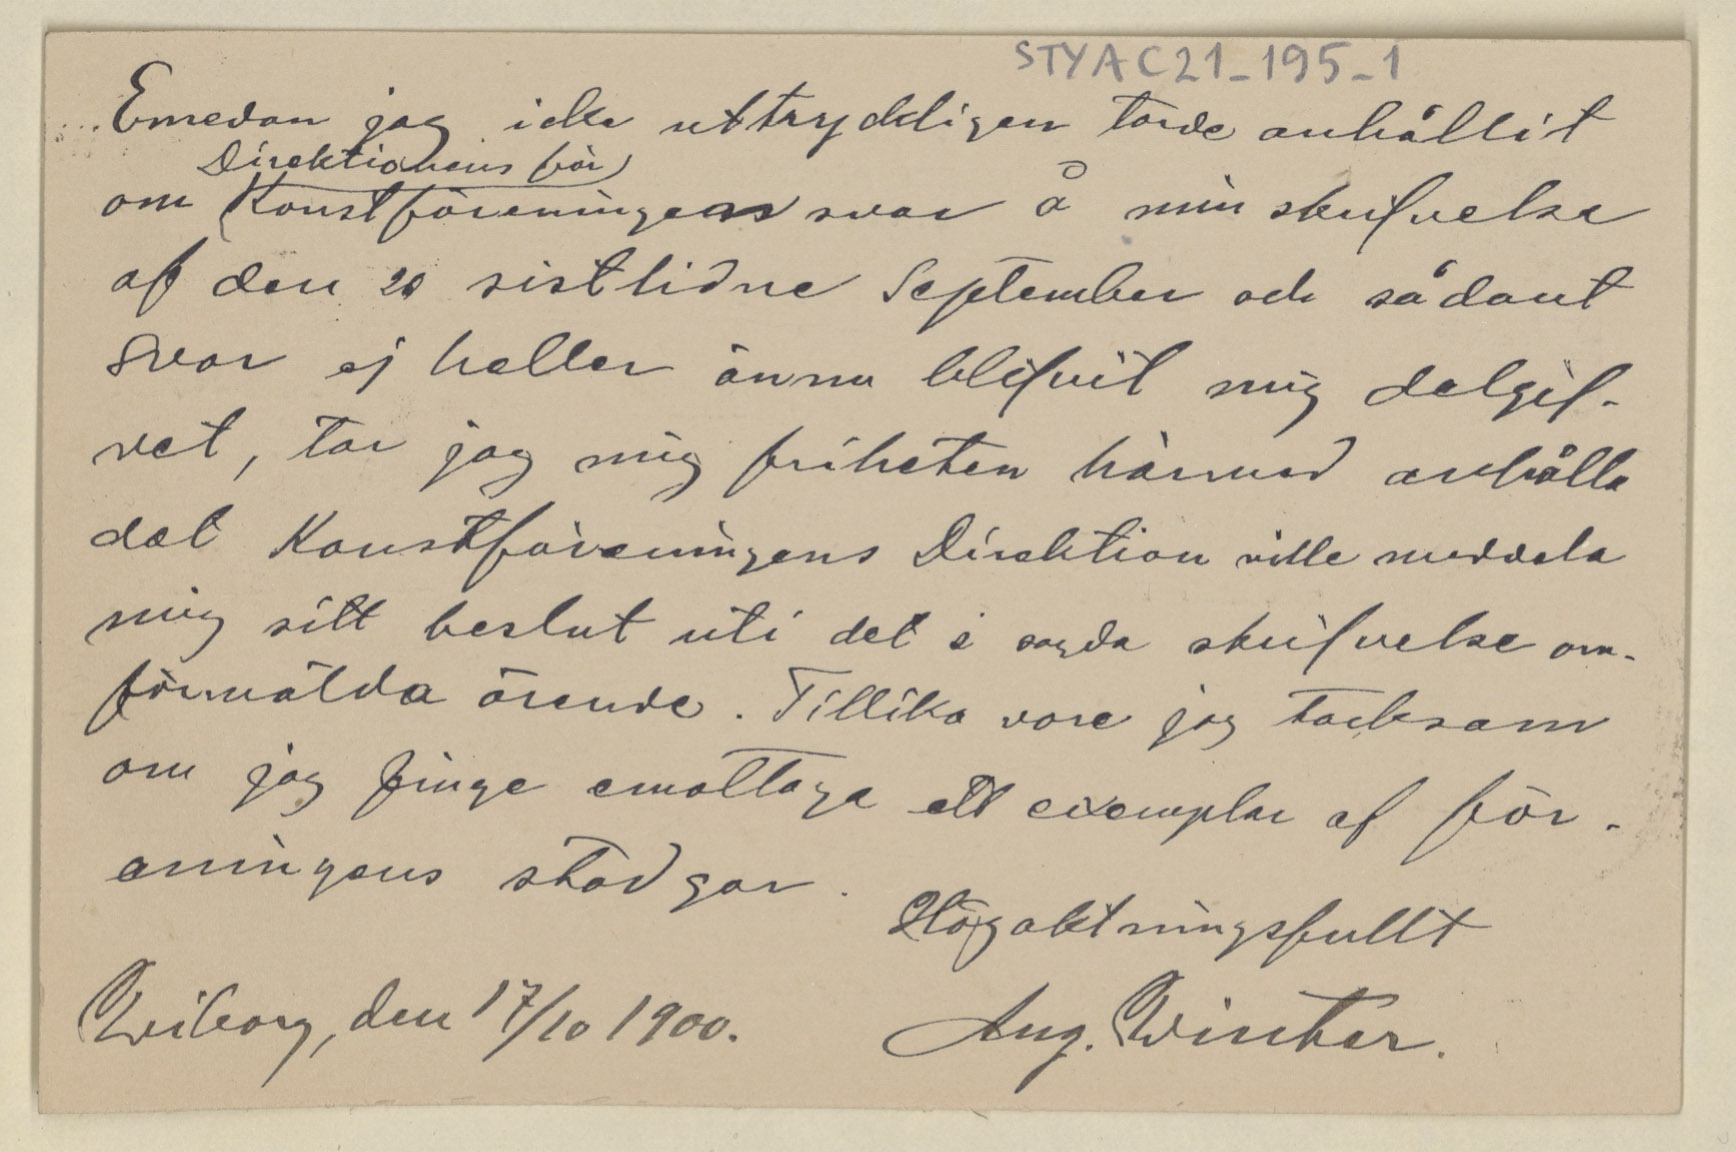 STYAC21_195_1
Emedan jag icke uttryckligen torde anhållit
Direktionens för
om Konstföreningens svar å min skrifvelse
af den 20 sistlidne September och sådant
svar ej heller ännu blifvit mig delgif-
vet, tar jag mig friheten härmed anhålla
det Konstföreningens Direktion ville meddela
mig sitt beslut uti det i sagda skrifvelse om-
förmälda ärende. Tillika vore jag tacksam
om jag finge emottaga ett exemplar af för-
eningens stadgar.
Högaktningsfullt
Wiborg, den 17/10 1900.
Aug. Winter.